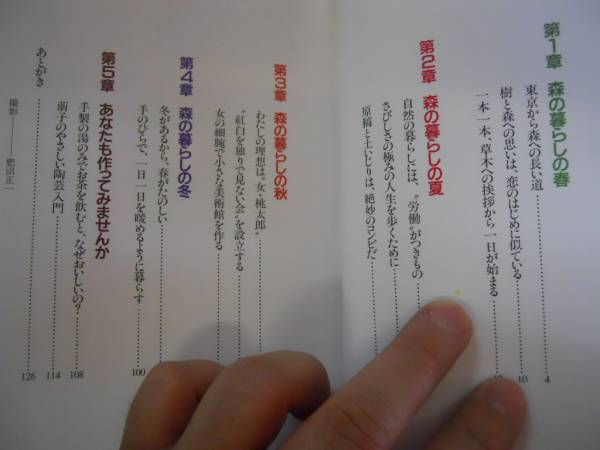 第1章 森の暮らしの春
東京から森への長い道……4
樹と森への思いは、恋のはじめに似ている……10
一本一本、草木への挨拶から一日が始まる……
第2章 森の暮らしの夏
自然の暮らしには、“労働”がつきもの……
さびしさの極みの人生を歩くために……
原稿と土いじりは、絶妙のコンビだ……
第3章 森の暮らしの秋
わたしの理想は“女、桃太郎”……
“紅白を独りで見ない会”を設立する……
女の細腕で小さな美術館を作る……
第4章 森の暮らしの冬
冬があるから、春がたのしい……
手のひらで、一日一日を暖めるように暮らす……100
第5章 あなたも作ってみませんか
手製の湯のみでお茶を飲むと、なぜおいしいの?……108
萠子のやさしい陶芸入門……114
あとがき……126
撮影――肥沼正一